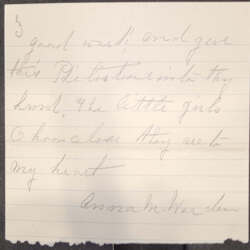 3
good work, and give
this Petition into thy
hand, The little girls
O how close they are to
my heart
Anna M. Warden